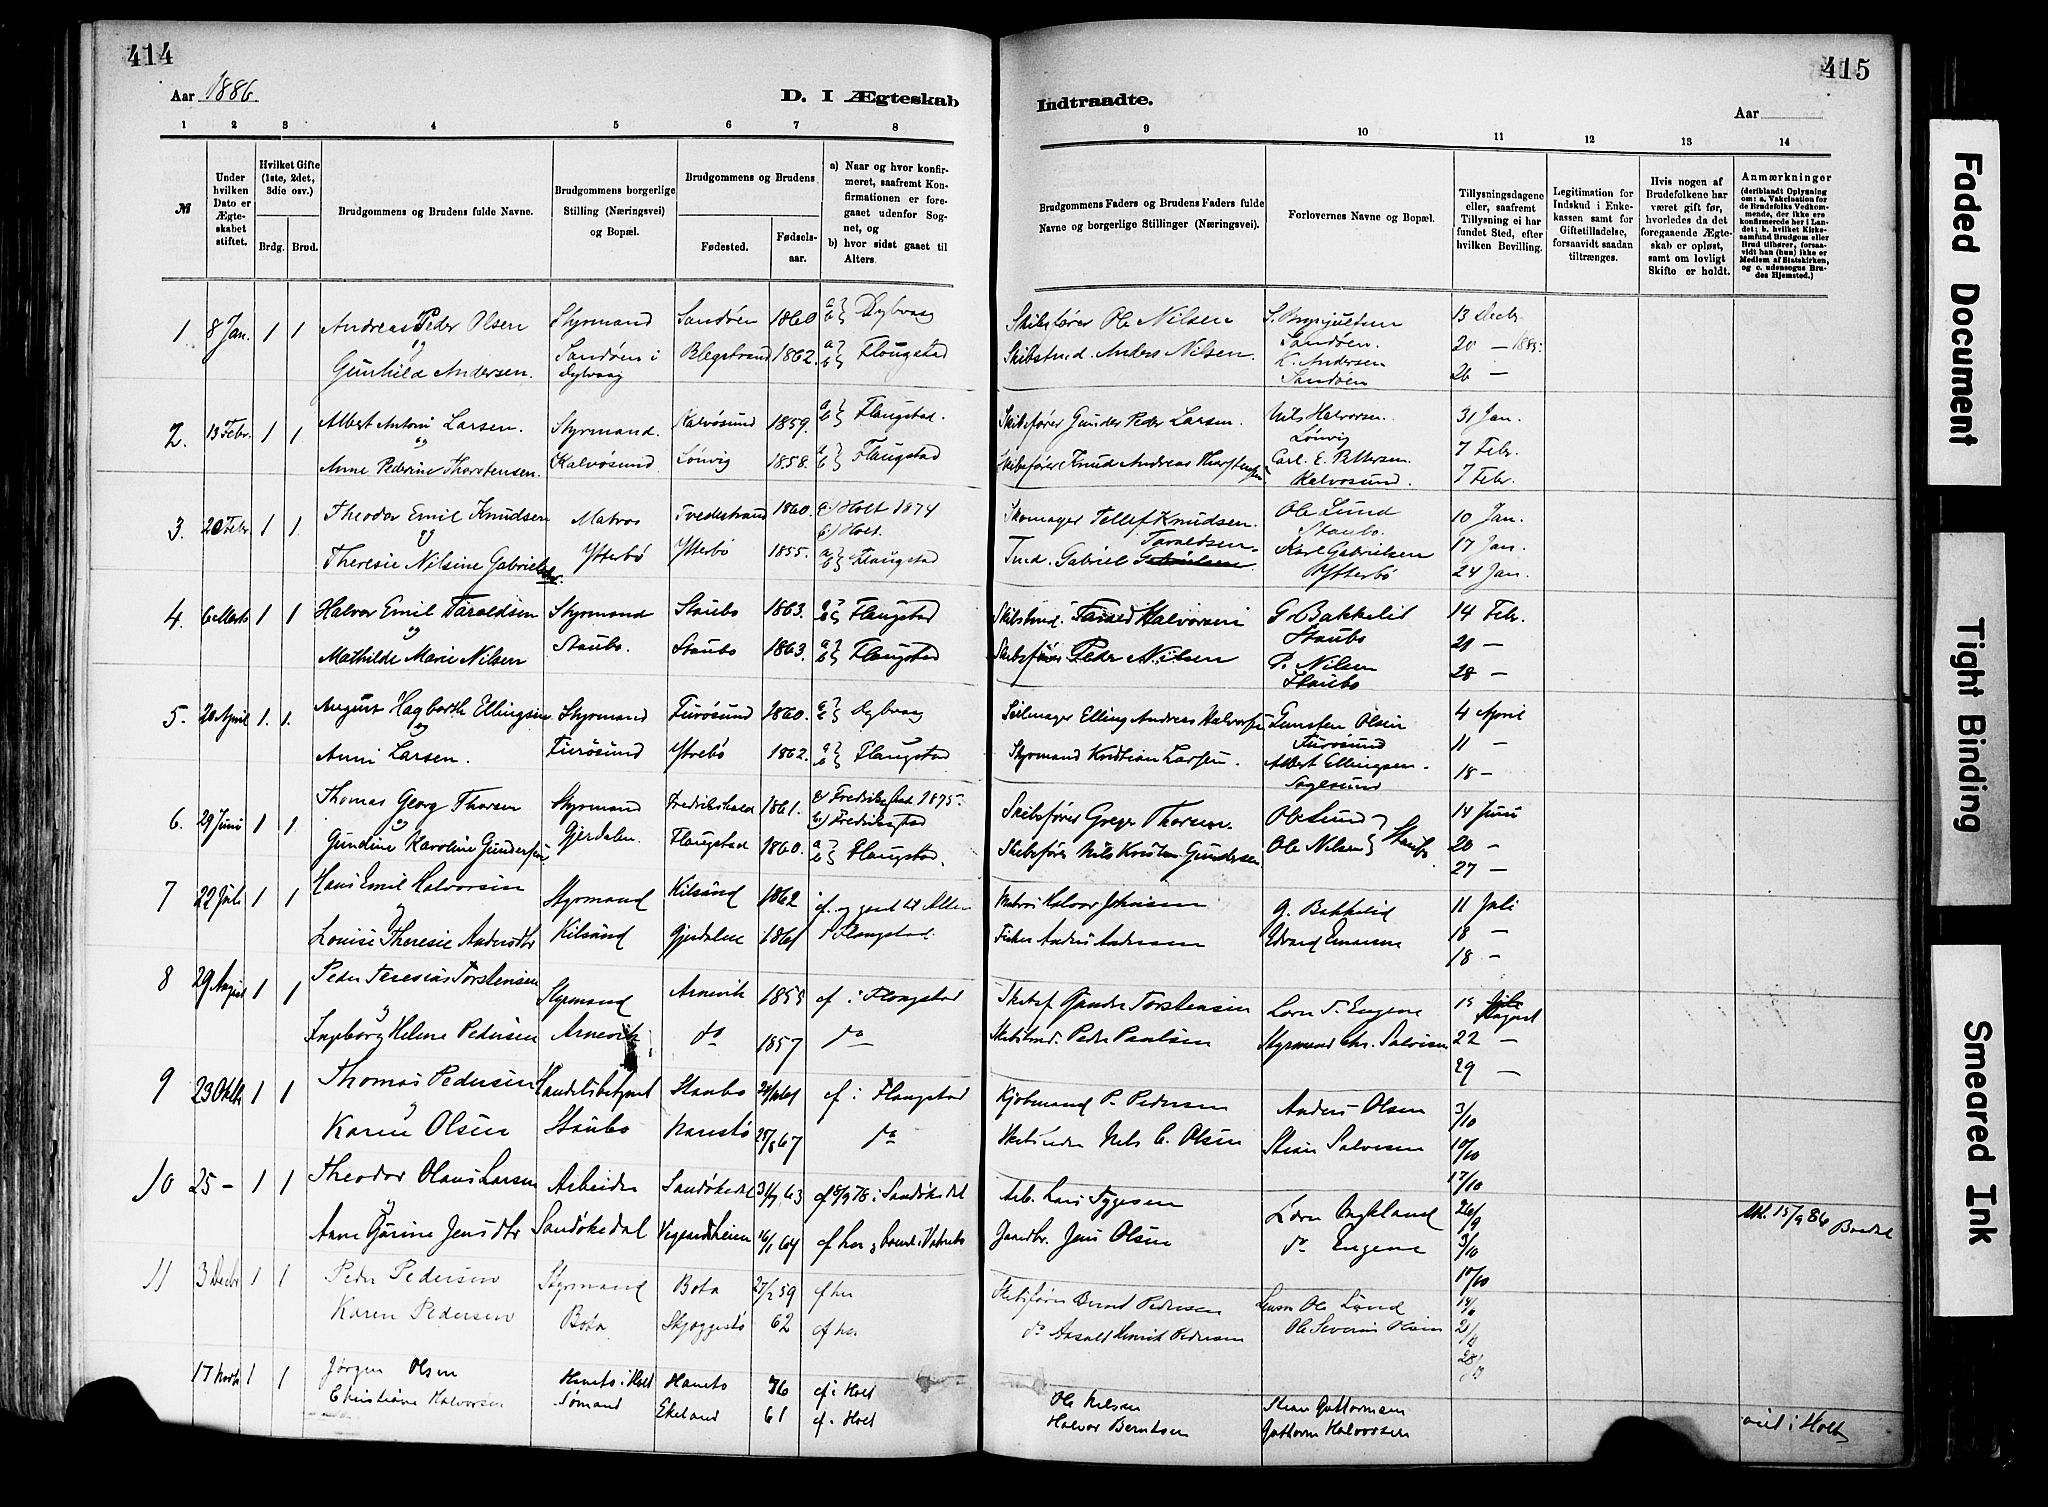 414
Aar 1886.
D. I Ægteskab
1 2 3 4 5 6 7 8
№
Under hvilken Dato er Ægteskabet stiftet.
Hvilket Gifte (1ste, 2det, 3die osv.)
Brdg. Brud.
Brudgommens og Brudens fulde Navne.
Brudgommens borgerlige Stilling (Næringsvei) og Bopæl.
Brudgommens og Brudens
Fødested.
Fødselsaar.
a) Naar og hvor konfirmeret, saafremt Konfirmationen er foregaaet udenfor Sognet, og
b) hvor sidst gaaet til Alters.
1. 8 Jan. 1 1 Andreas Peder Olsen Styrmand Sandøen 1860 a b } Dybvaag
og
Gunhild Andersen. Sandøen i Dybvaag Blegstrand 1862. a b } Flaugstad
2. 13 Febr. 1 1 Albert Antoni Larsen. Styrmand. Kalvøsund 1859. a b } Flaugstad.
og
Anne Pederine Thorstensen. Kalvøsund Lønvig 1858. a b } Flaugstad
3. 20 Febr. 1 1. Theodor Emil Knudsen Matros Tvedestrand 1860. a) Holt 1874
og b) Holt.
Theresie Nilsine Gabrielsdtr. Ytterbø Ytterbø 1855. a b } Flaugstad
4. 6 Marts 1 1. Halvor Emil Taraldsen Styrmand Staubo 1863. a b } Flaugstad
og
Mathilde Marie Nilsen Staubo. Staubo 1863. a b } Flaugstad
5. 20 April 1. 1. August Hagbarth Ellingsen Styrmand Furøsund 1860. a b } Dybvaag
og
Anni Larsen. Furøsund Ytrebø 1862. a b } Flaugstad
6. 29 Juni 1 1. Thomas Georg Thorsen Styrmand Fredrikshald 1861. a) Fredrikstad 1875.
b) Fredrikstad
Gundine Karoline Gundersen Gjerdalen. Flaugstad 1860. a b } Flaugstad.
7 22 Juli 1 1 Hans Emil Halvorsen Styrmand Kilsund 1862 cf. og gaaet til Alters
Louise Theresie Andersdtr Kilsund Gjerdalen 1861 i Flaugstad.
8 29 August 1 1 Peder Teresias Torstensen Styrmand Arnevik 1855 cf i Flaugstad
Ingeborg Helene Pedersen Arnevik do 1857 do
9 23 Oktbr 1 1 Thomas Pedersen Handelsbetjent Staubo cf i Flaugstad
Karen Olsen Staubo Narestø 25/8 67 do
10 25 – 1 1 Theodor Olaus Larsen Arbeider Sandøkedal 31/7 63 cf 8/9 78 i Sandøkedal
Anne Gurine Jensdtr Sandøkedal Vegaardsheien 16/1 64 cf her
11 3 Decbr 1 1 Peder Pedersen Styrmand Bota 27/2 59 cf her
Karen Pedersen Bota Skjæggestø 62 cf her
17 1 1 Jørgen Olsen Haneto i Holt Haneto 76 cf i Holt
Christiane Halvorsen Sømand Ekeland 61 cf. i Holt
415
Indtraadte.
Aar
9 10 11 12 13 14
Brudgommens Faders og Brudens Faders fulde Navne og borgerlige Stillinger (Næringsvei).
Forlovernes Navne og Bopæl.
Tillysningsdagene eller, saafremt Tillysning ei har fundet Sted, efter hvilken Bevilling.
Legitimation for Indskud i Enkekassen samt for Giftetilladelse, forsaavidt saadan tiltrænges.
Hvis nogen af Brudefolkene har været gift før, hvorledes da det foregaaende Ægteskab er opløst, samt om lovligt Skifte er holdt.
Anmærkninger (deriblandt Oplysning om: a. Vakcination for de Brudefolks Vedkommende, der ikke ere konfirmerede her i Landet; b. hvilket Kirkesamfund Brudgom eller Brud tilhører, forsaavidt han (hun) ikke er Medlem af Statskirken, og c. udensogns Brudes Hjemsted.)
Skibsfører Ole Nilsen Sandøen. 13 Decbr.
Skibstmd. Anders Nilsen. K. Andersen 20 – 1885.
Sandøen 26 –
Skibsfører Gunder Peder Larsen. Nils Halvorsen. 31 Jan.
Lønvig 7 Febr.
Skibsfører Knud Andreas Thorstensen Carl. E. Pettersen. Kalvøsund. 7 Febr.
Skomager Tellef Knudsen. Ole Lund Staubo. 10 Jan.
Tmd. Gabriel Taraldsen. Karl Gabrielsen 17 Jan.
Ytterbø 24 Jan.
Skibstmd. Tarald Halvorsen G. Bakkelid 14 Febr.
Staubo 21 –
Skibsfører Peder Nilsen P. Nilsen Staubo 28 –
Seilmager Elling Andreas Halvorsen Gunsten Olsen 4 April
Furøsund 11 –
Styrmand Kristian Larsen. Albert Ellingsen. Sagesund 18 –
Skibsfører Greger Thorsen. Ole Lund } Staubo. 14 Juni
Skibsfører Nils Kristen Gundersen Ole Nilsen 20 –
27 –
Matros Halvor Johnsen G. Bakkelid 11 Juli
Fisker Anders Andersen Edvard 18 –
18 –
Skibsf. Gunder Torstensen Losn T. Engene 15 August
Skibstmd. Peder Paulsen Styrmand Chr. Salvesen 22 –
29 –
Kjøbmand P. Pedersen Anders Olsen 3/10
Nils C. Olsen Stian Salvesen 10/10
17/10
Arb. Lars Tygesen 26/9 Att. 15/9 86
Gaardbr. Jens Olsen do Engene 3/10
10/10
Skibsfører Bernt Pedersen Ole Lund 14/
do Henrik Pedersen Ole Severin Olsen 21/
28/
Ole Nilsen Stian Guttormsen
Halvor Berntsen Guttorm Halvorsen viet i Holt
Faded Document
Tight Binding
Smeared Ink